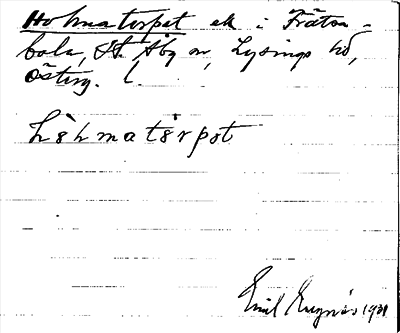 Holmatorpet ek i Fråton-
bola, St. Åby sn, Lysings hd,
Österg. l.
hòhmatårpət
Emil 1931